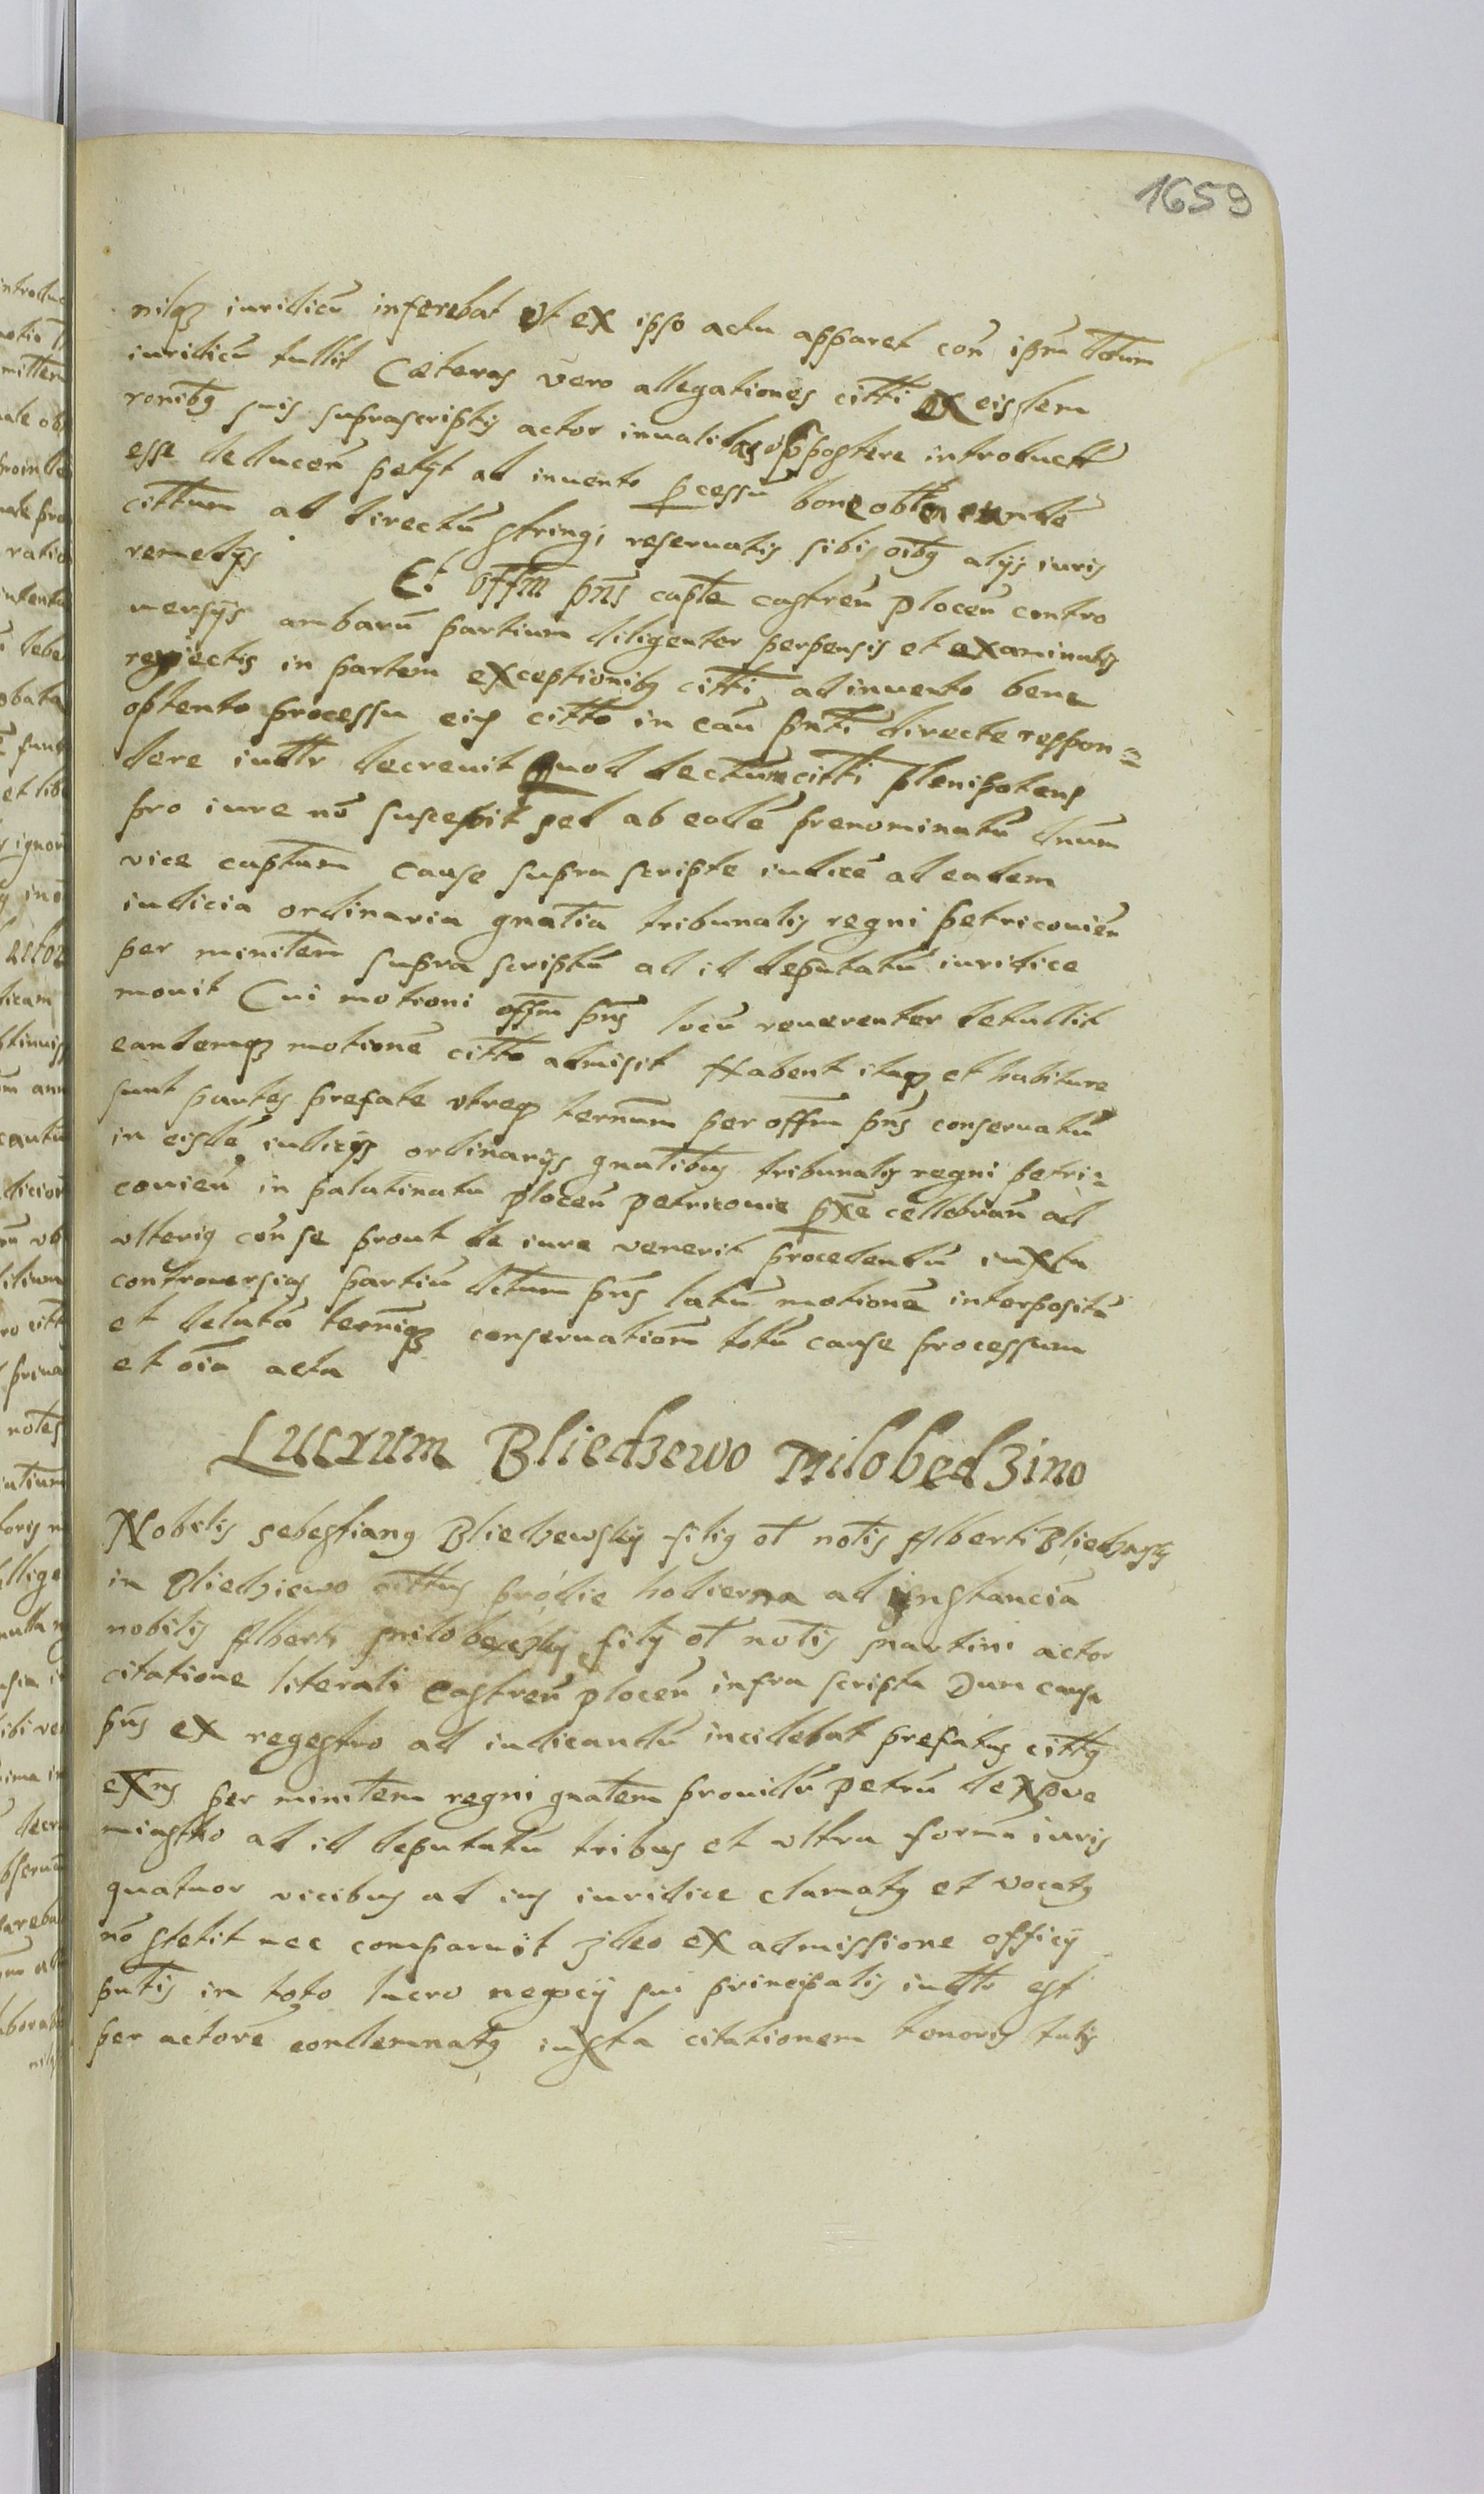 1659
nilq iuridicũ inferebat Vt ex ipso actu apparet coñ ipm̃ dctum
iuridicũ tullit Cæteras vero allegationes citti ex eisdem
ronibq suis suprascriptis actor inualidas introduct
esse deducen̄ petyt ad inuento pcessũ bene obten eundẽ
cittum ad directũ stringi reseruatis sibi oibq alijs iuris
remedijs Et offm pñs capte castreñ Ploceñ contro
uersijs ambarũ partium diligenter perpensis et examinatis
reyiectis in partem exceptionibq citti ad inuento bene
optento processu eius citto in cau pñti directe respon=
dere iudtr decreuit Quod dectum citti plenipotens
pro iure nõ suscepit sed ab eodẽ prenominatũ dnũm
vice captum cause supra scripte iudicẽ ad eadem
iudicia ordinaria gnatia tribunalis regni petricouieñ
per minitem supra scriptũ ad id deputatũ iuridice
mouit Cui motioni offm pñs locũ reuerenter detullit
eandemq motionẽ citto admisit Habent itaq et habiture
sunt partes prefate vtreq termum per offm pñs conseruatũ
in eisdẽ iudicijs ordinarijs gnalibus tribunalis regni petri=
couieñ in palatinatu Ploceñ petricouie pxe cellebrañ ad
vlteriq coñ se prout de iure venerit procedendũ iuxta
controuersias partiũ dctum pñs latũ motionẽ interpositã
et delatã termiq conseruationẽ totũ cause processum
et oia acta
Lucrum Bliedzewo Milobędzino
Nobilis Sebestianq Bliedzewsky filiq ol notis Alberti Bliedzewsky
in Bliedziewo cittus pro die hodierna ad instancia
nobilis Alberti Milobedzky filij ol notis Martini actor
citatione literali Castreñ Ploceñ infra scripta Dum causa
pñs ex regestro ad iudicandũ incidebat prefatus cittq
exñs per minitem regni gnatem prouidũ Petrũ de Nove
miastho ad id deputatũ tribus et vltra formã iuris
quatuor vicibus ad ius iuridice clamatq et vocatq
nõ stetit nec comparuit Ideo ex admissione officij
pñtis in toto lucro negocij sui principalis iudtr est
per actorẽ condemnatq iuxta citationem tenoris talis